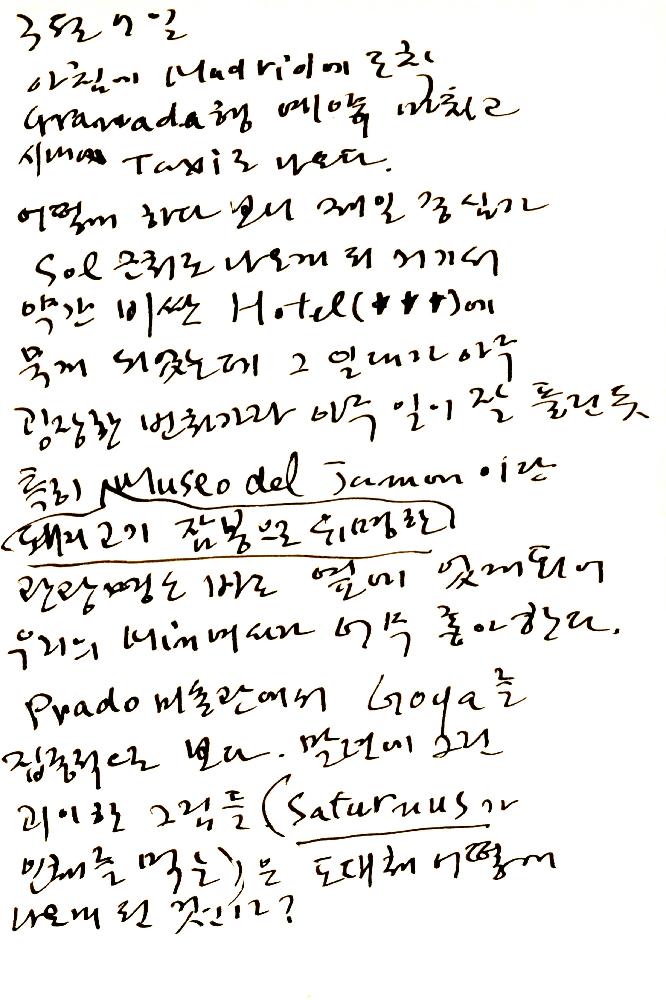 3월 7일
아침에 Madrid에 도착
Granada행 예약 마치고
시내에 Taxi로 나오다.
어떻게 하다 보니 제일 중심가
Sol 근처로 나오게 되 거기서
약간 비싼 Hotel(★★★)에
묵게 되었는데 그 일대가 아주
굉장한 번화가라 아주 일이 잘 풀린 듯
특히 Museo del Jamon 이란
(돼지고기 잠봉으로 유명한)
관광명소 바로 옆에 있게되어
우리의 너무 좋아한다.
Prado 미술관에서 Goya를
집중적으로 보다. 말년에 그린
괴이한 그림들 (Saturnus가
인체를 먹는)은 도대체 어떻게
나오게 된 것인가?